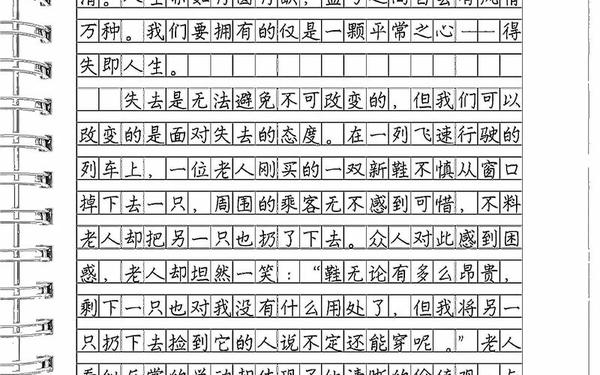 万种。我们要拥有的仅是一颗平常之心——得
失即人生。
失去是无法避免不可改变的，但我们可以
改变的是面对失去的态度。在一列飞速行驶的
列车上，一位老人刚买的一双新鞋不慎从窗口
掉下去一只，周围的乘客无不感到可惜，不料
老人却把另一只也扔了下去。众人对此感到困
惑，老人却坦然一笑：“鞋无论有多么昂贵，
剩下一只也对我没有什么用处了，但我将另一
只扔下去捡到它的人说不定还能穿呢。”老人